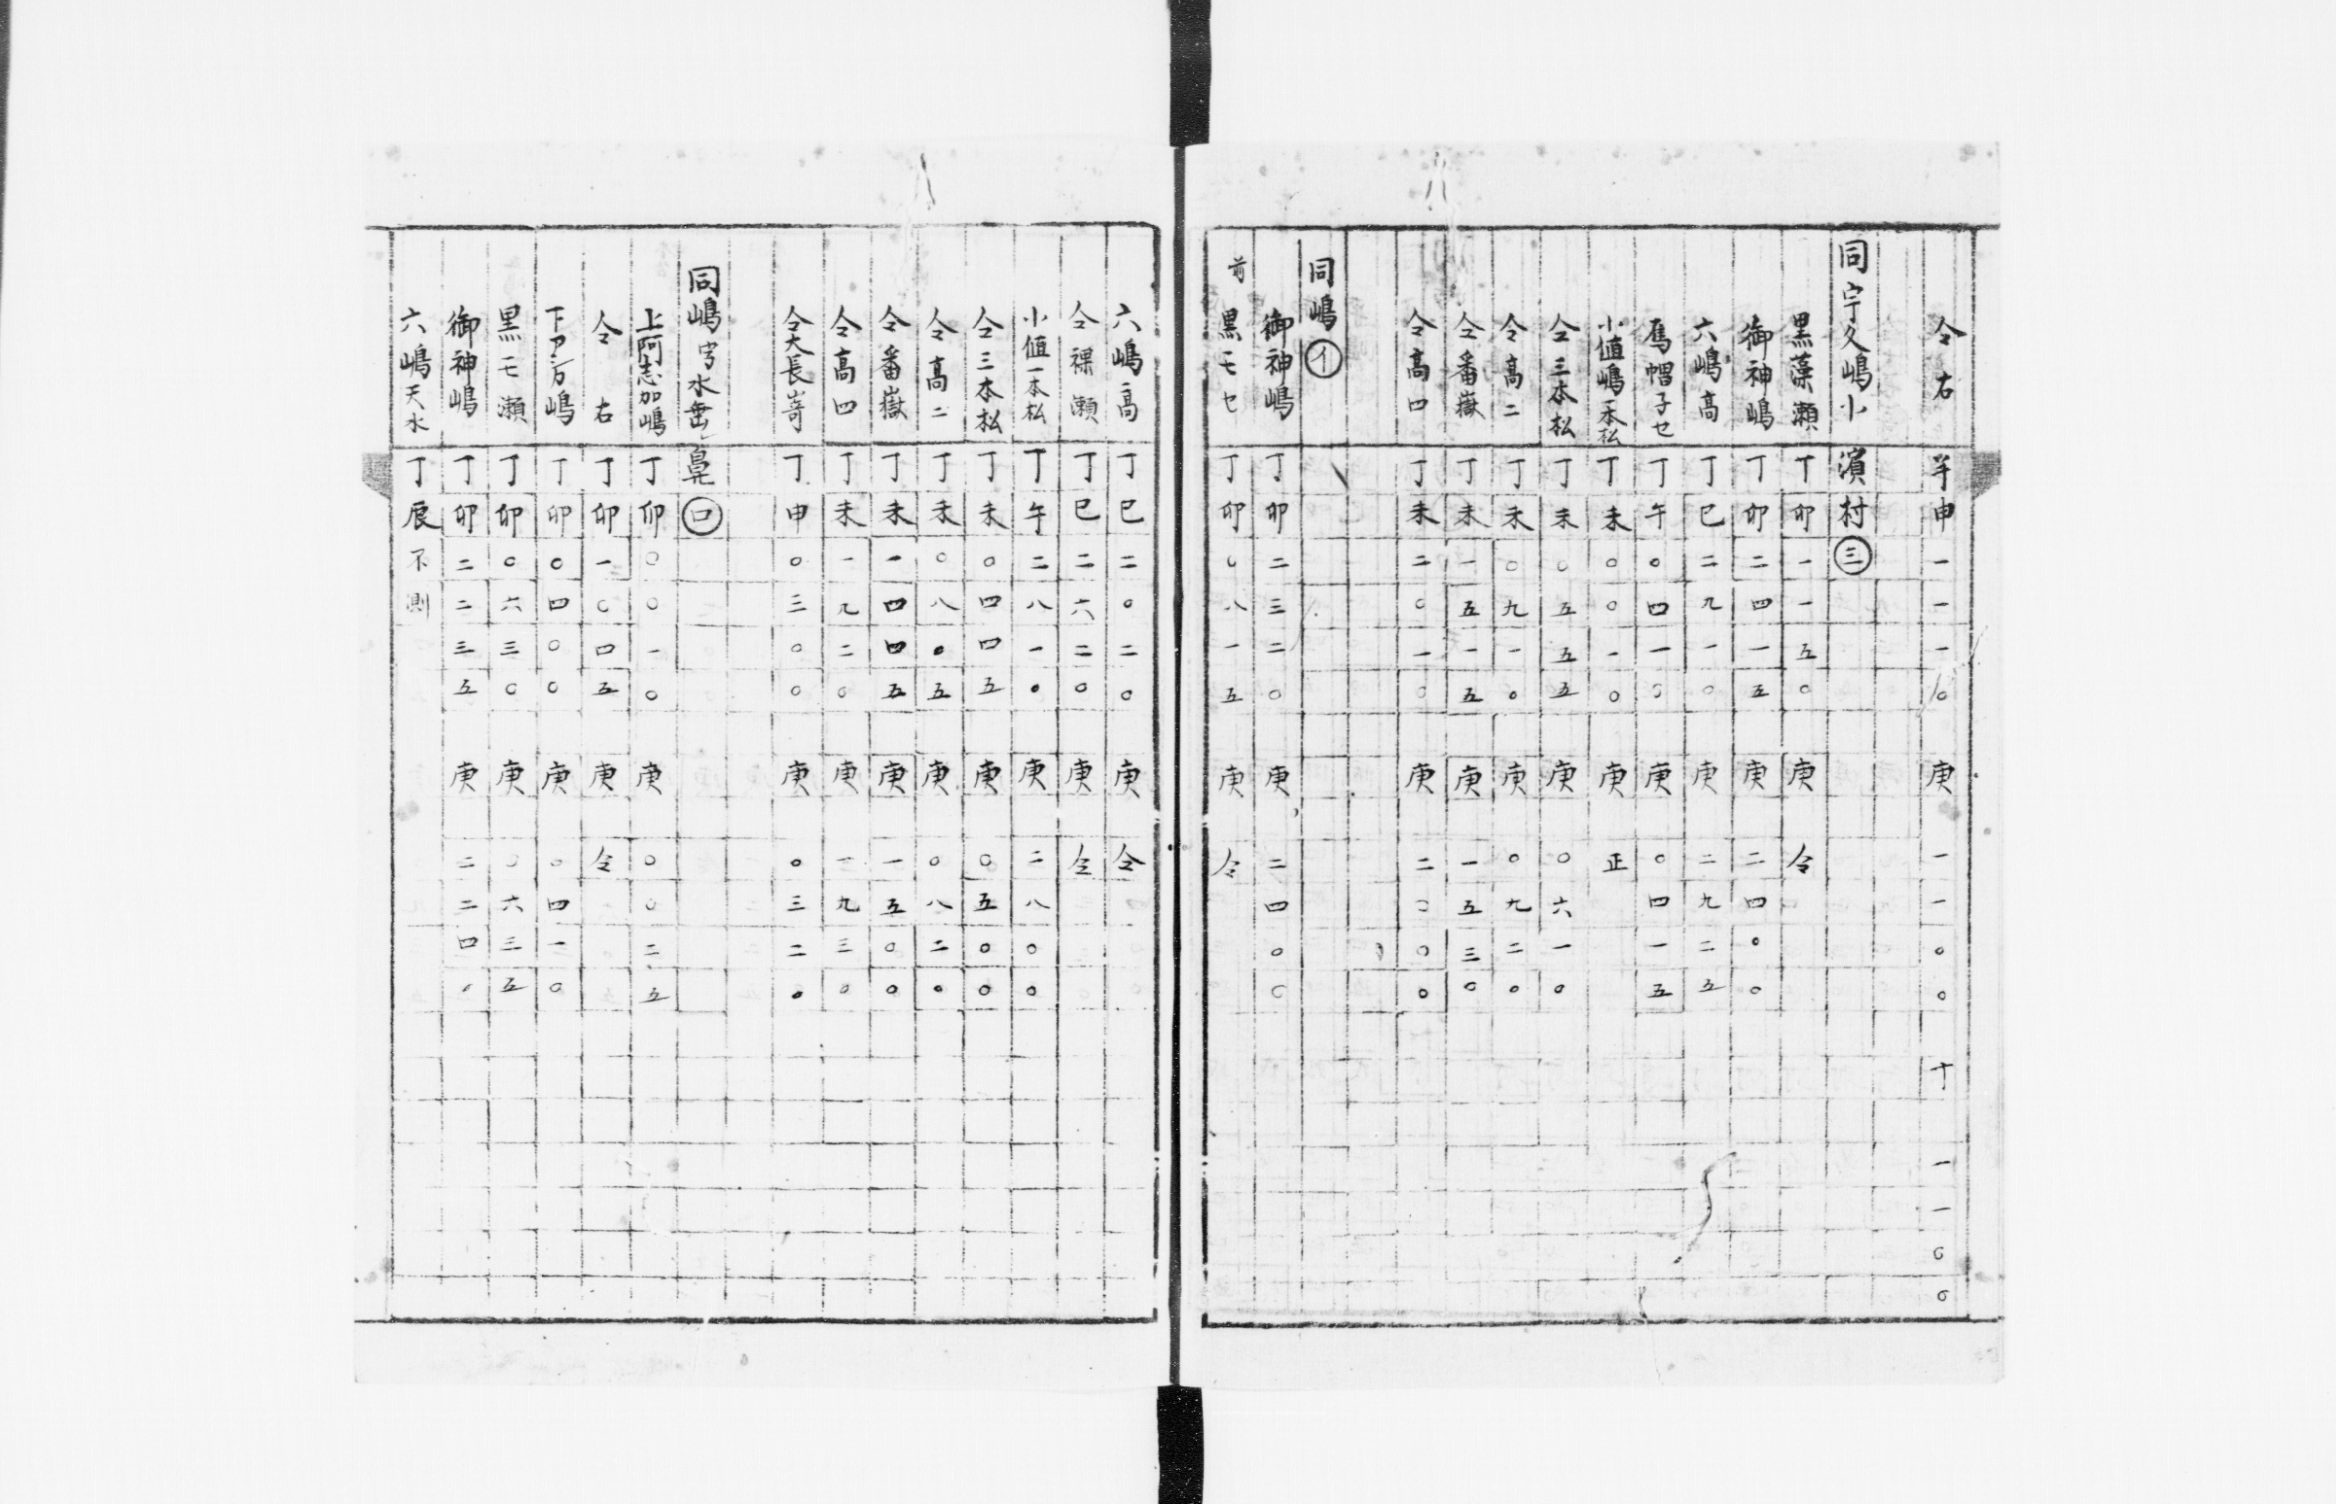 仝右 羊申一一一〇 庚一一〇〇 十一一〇〇
同宇久嶋小濵村㊂
黒藻瀬 丁卯一一五〇 庚仝
御神嶋 丁卯二四一五 庚二四〇〇
六嶋高 丁巳二九一〇 庚二九二五
鳫帽子セ 丁午〇四一〇 庚〇四一五
小値嶋一本松 丁未〇〇一〇 庚正
仝三本松 丁未〇五五五 庚〇六一〇
仝高二 丁未〇九一〇 庚〇九二〇
仝番嶽 丁未一五一五 庚一五三〇
仝高四 丁未二〇一〇 庚二〇〇〇
同嶋㋑
御神嶋 丁卯二三二〇 庚二四〇〇
前黒モセ 丁卯〇八一五 庚仝
六嶋高 丁巳二〇二〇 庚仝
仝裸瀬 丁巳二六二〇 庚仝
小値一本松 丁午二八一〇 庚二八〇〇
仝三本松 丁未〇四四五 庚〇五〇〇
仝高二 丁未〇八〇五 庚〇八二〇
仝番嶽 丁未一四四五 庚一五〇〇
仝高四 丁未一九二〇 庚一九三〇
仝大長嵜 丁申〇三〇〇 庚〇三二〇
同嶋字水垂鼻㋺
上阿志加嶋 丁卯〇〇一〇 庚〇〇二五
仝右 丁卯一〇四五 庚仝
下アシカ嶋 丁卯〇四〇〇 庚〇四一〇
黒モ瀬 丁卯〇六三〇 庚〇六三五
御神嶋 丁卯二二三五 庚二二四〇
六嶋天水 丁辰不測